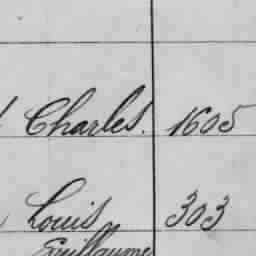 Charles. 1605
Louis 303
Guillaume